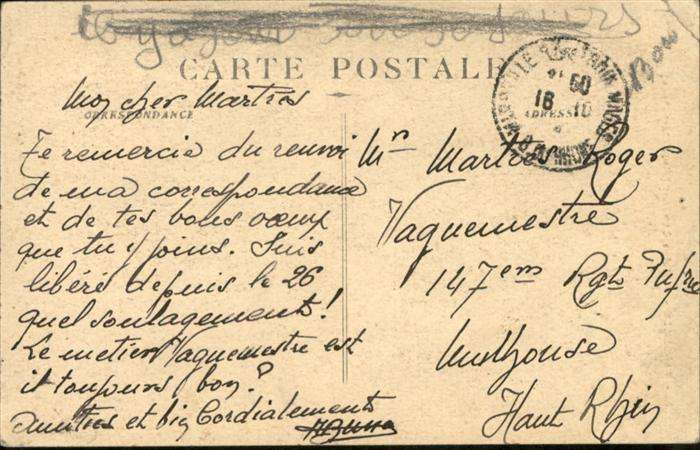 CARTE POSTALE
Mon cher Martres
CORRESPONDANCE
ADRESSE
Te remercie du renvoi
de ma correspondance
et de tes bons voeux
que tu y joins. Suis
libéré depuis le 26
quel soulagement!
Le metier Vaguemestre est
il toujours bon?
Amitiés et bien Cordialement
Mr Martres Roger
Vaguemestre
147em Rgt Inf
Mulhouse
Haut Rhin